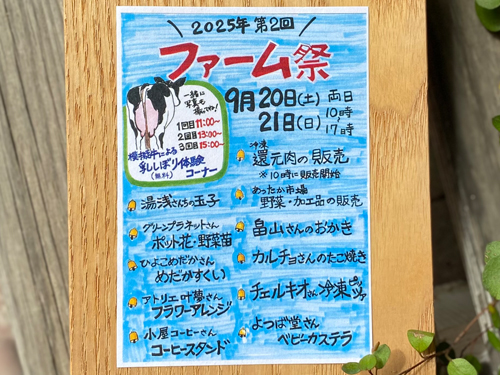 2025年 第2回
ファーム祭
9月20日(土)
21日(日)
両日
10時
〜
17時
一緒に
写真も
撮ってね!
1回目 11:00〜
2回目 13:00〜
3回目 15:00〜
模擬牛による
乳しぼり体験
(無料) コーナー
冷凍
還元肉の販売
※10時に販売開始
あったか市場
野菜・加工品の販売
湯浅さんちの玉子
グリーンプラネットさん
ポット花・野菜苗
ひよこめだかさん
めだかすくい
アトリエ叶夢さん
フラワーアレンジ
小屋コーヒーさん
コーヒースタンド
畠山さんのおかき
カルチョさんのたこ焼き
チェルキオさん冷凍ピッツァ
よつば堂さん
ベビーカステラ